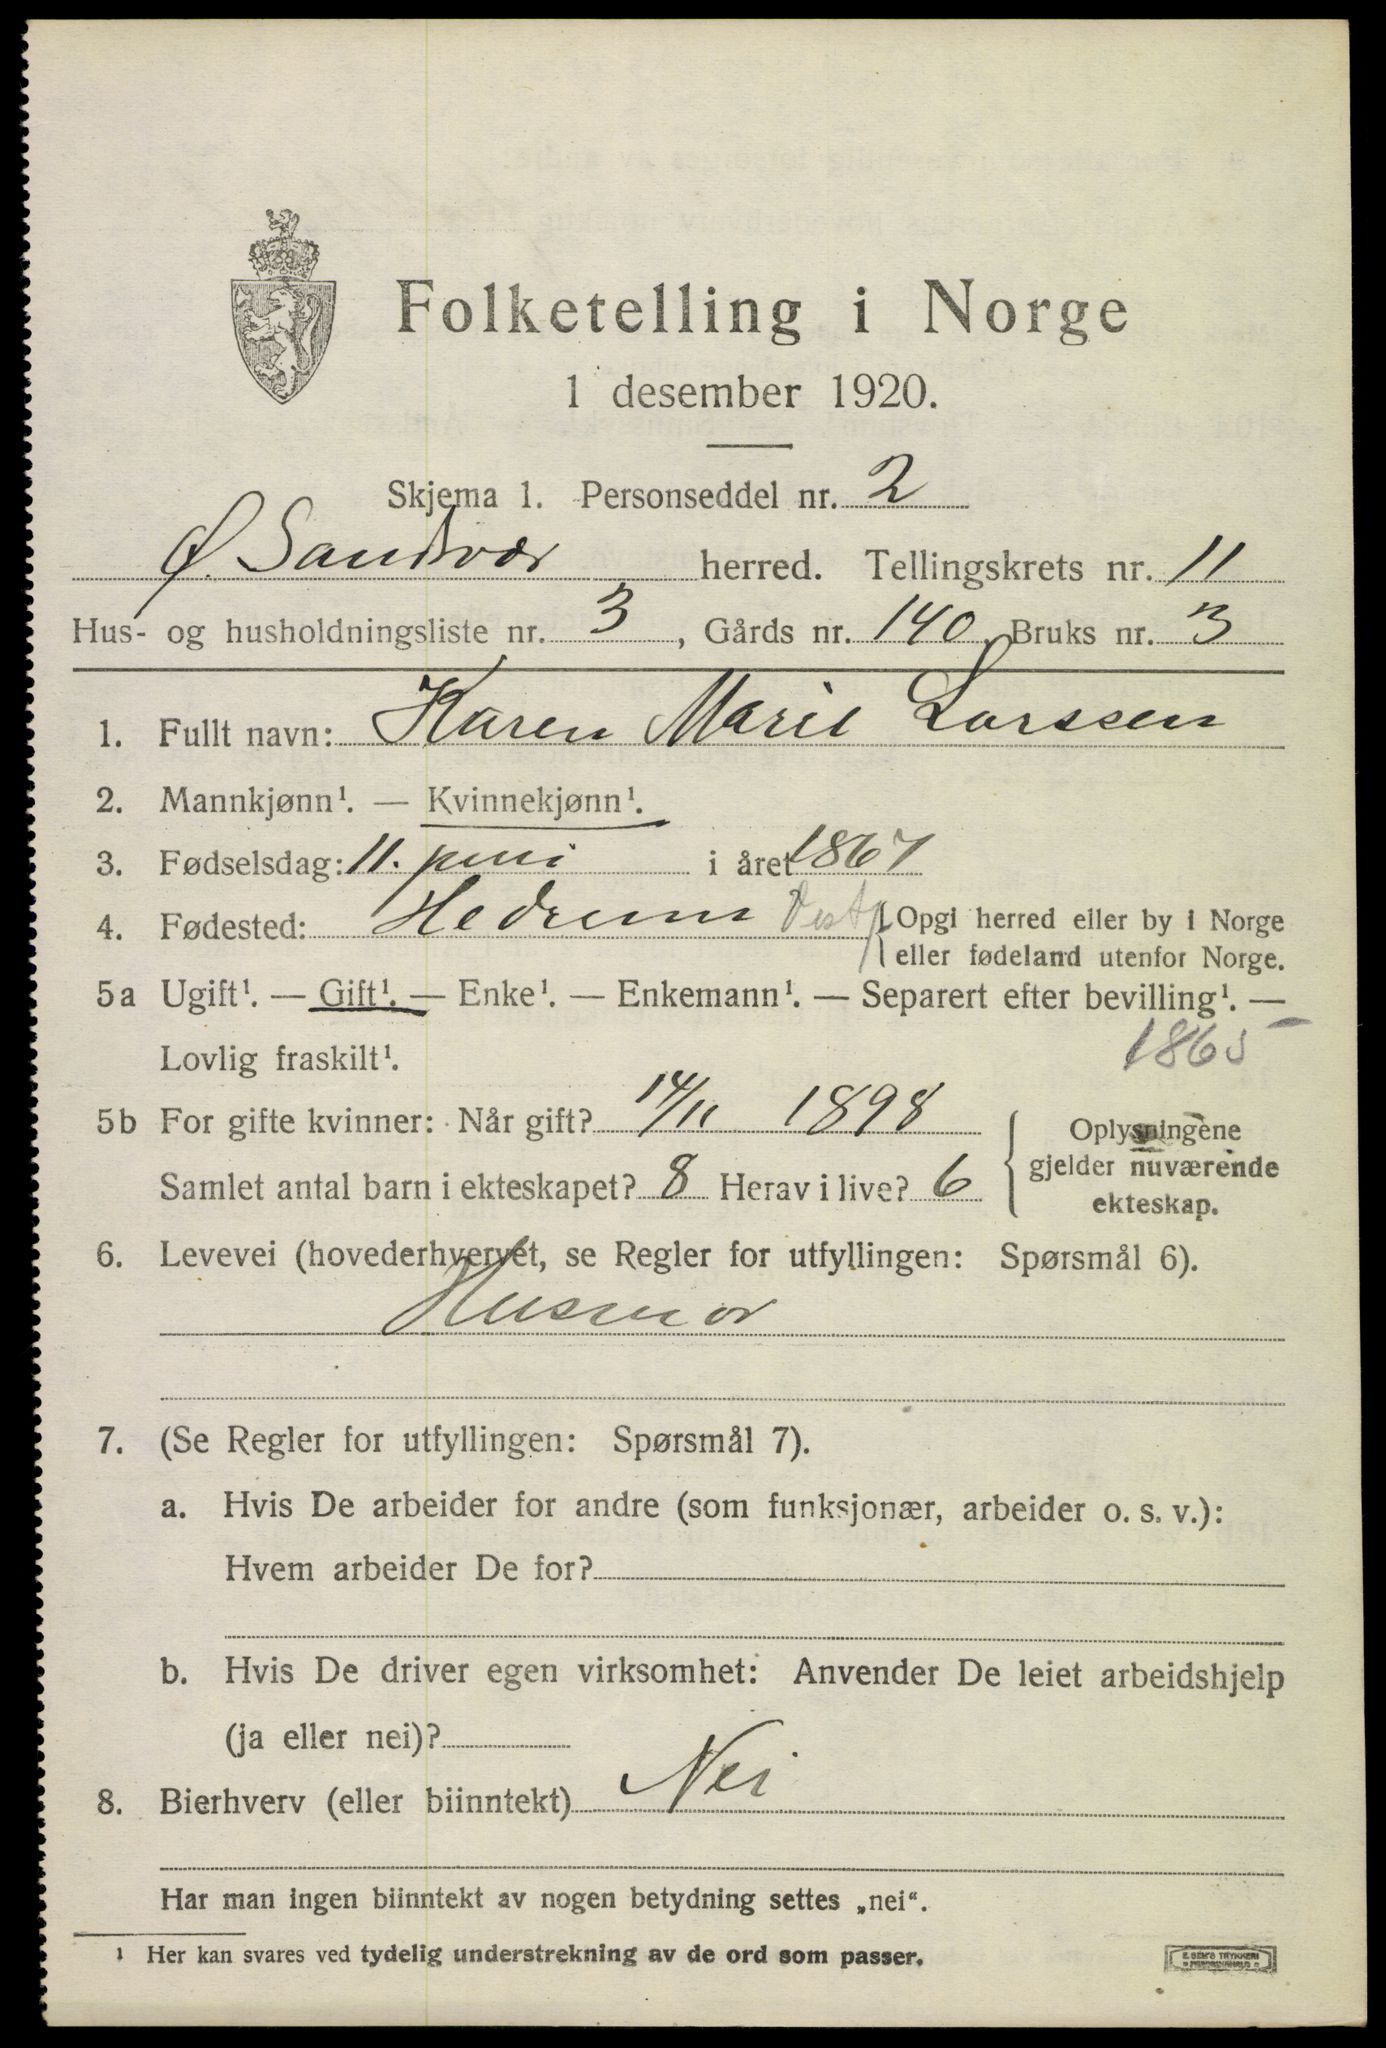 Folketelling i Norge
1 desember 1920.
Skjema 1. Personseddel nr. 2
Ø. Sandsvær herred. Tellingskrets nr. 11
Hus- og husholdningsliste nr. 3, Gårds nr. 140, Bruks nr. 3
1. Fullt navn: Karen Marie Larssen
2. Mannkjønn¹. — Kvinnekjønn¹.
3. Fødselsdag: 11. juni i året 1867
4. Fødested: Hedrum Vestf { Opgi herred eller by i Norge
eller fødeland utenfor Norge.
5a Ugift¹. — Gift¹. — Enke¹. — Enkemann¹. — Separert efter bevilling¹. —
Lovlig fraskilt¹. 1865
5b For gifte kvinner: Når gift? 14/11 1898
Samlet antal barn i ekteskapet? 8 Herav i live? 6
{ Oplysningene
gjelder nuværende
ekteskap.
6. Levevei (hovederhvervet, se Regler for utfyllingen: Spørsmål 6).
Husmor
7. (Se Regler for utfyllingen: Spørsmål 7).
a. Hvis De arbeider for andre (som funksjonær, arbeider o. s. v.):
Hvem arbeider De for?
b. Hvis De driver egen virksomhet: Anvender De leiet arbeidshjelp
(ja eller nei)?
8. Bierhverv (eller biinntekt) Nei
Har man ingen biinntekt av nogen betydning settes „nei“.
¹ Her kan svares ved tydelig understrekning av de ord som passer.